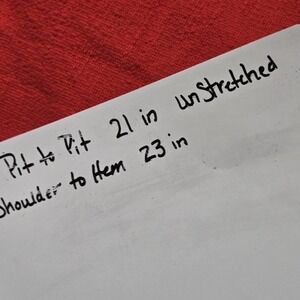 Pit to Pit 21 in unStretched
Shoulder to Hem 23 in